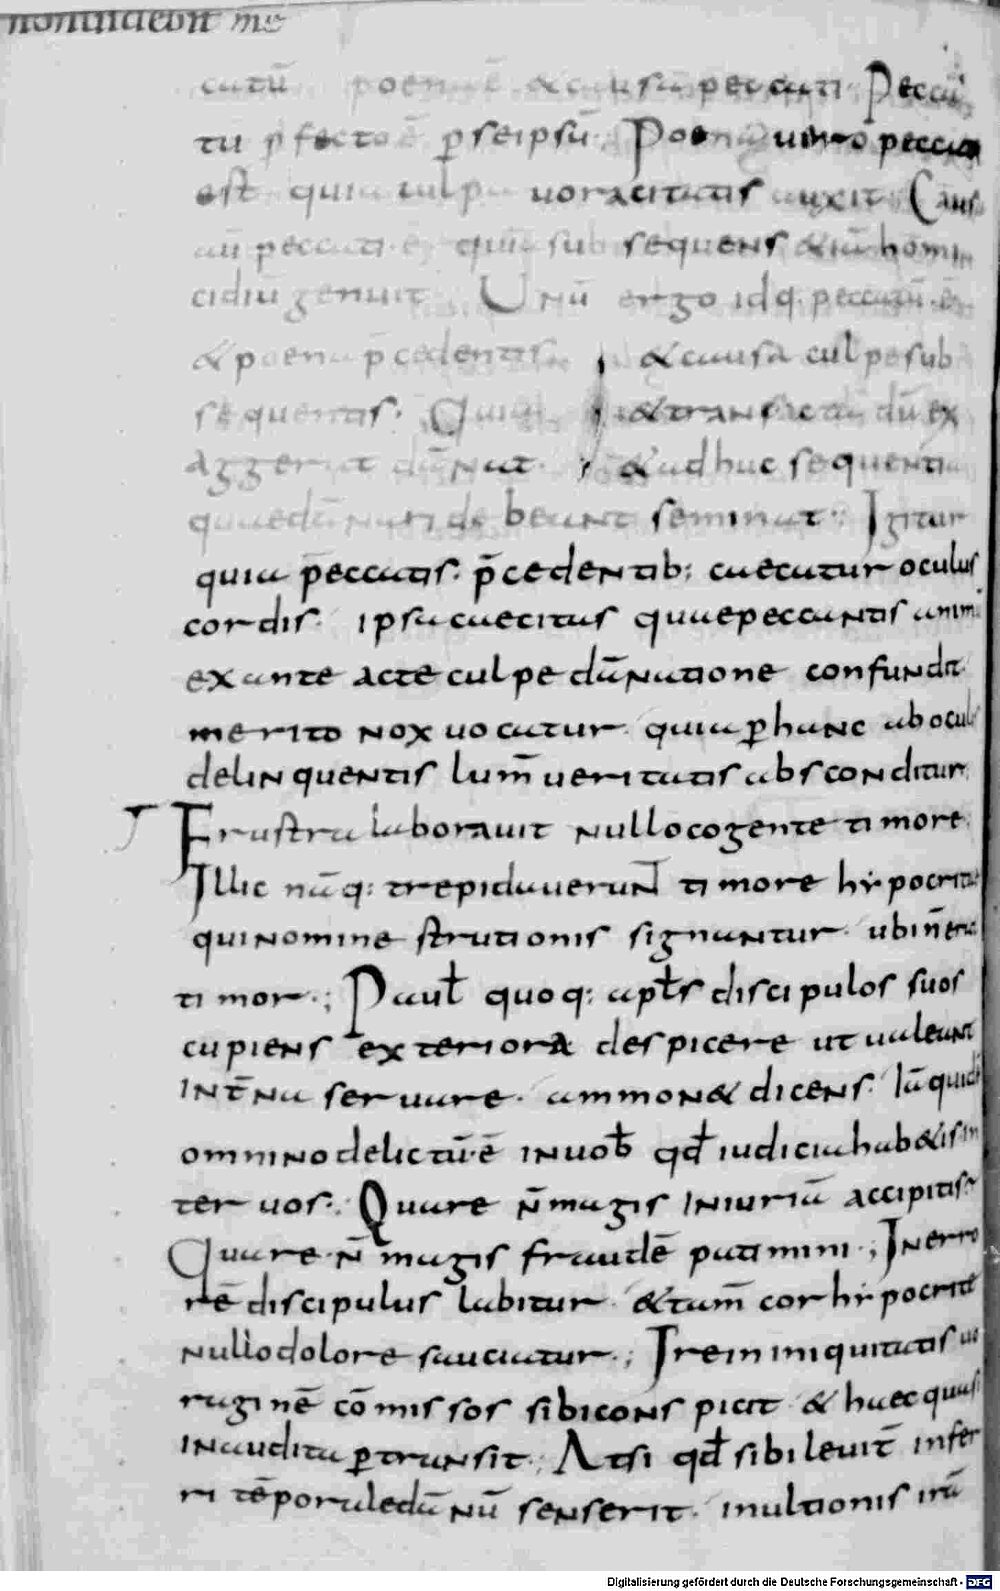 catū poena ē & causa peccati. Pecca
tū p fecto ē p seipsū. Poena uero peccati
est quia culpa uoracitatis auxit. Causa
aū peccati ē quia subsequens &iā homi
cidiū genuit. Unū ergo idq. peccatū ē
& poena p̄cedentis & causa culpe sub
sequentis. Quia & transacta dū ex
aggerat dānat. & adhuc sequentia
quae dānari debeant seminat. Igitur
quia p̄eccatis. p̄cedentib; caecatur oculus
cordis. ipsa caecitas quae peccantis animū
ex ante acte culpe dānatione confundit
merito nox uocatur. quia p hanc ab oculis
delinquentis lum̄ ueritatis absconditur.
Frustra laborauit nullo cogente timore.
Illic nāq: trepidauerunt timore hypocritae
qui nomine strutionis signantur. ubi n̄ erat
timor.; Paul̄ quoq: apl̄s discipulos suos
cupiens exteriora despicere ut ualeant
int̄na seruare. ammon& dicens. Iā quidē
omnino delictū ē in uob̄ qd̄ iudicia hab&is in
ter uos. Quare n̄ magis iniuriā accipitis.
Quare n̄ magis fraudē patimini.; In erro
rē discipulus labitur. & tam̄ cor hypocritae
nullo dolore sauciatur.; Irem iniquitatis uo
raginē cōmissos sibi conspicit & haec quasi
inaudita ptransit. At si qd̄ sibi leuit̄ infer
ri tēporale dānū senserit. in ultionis irā